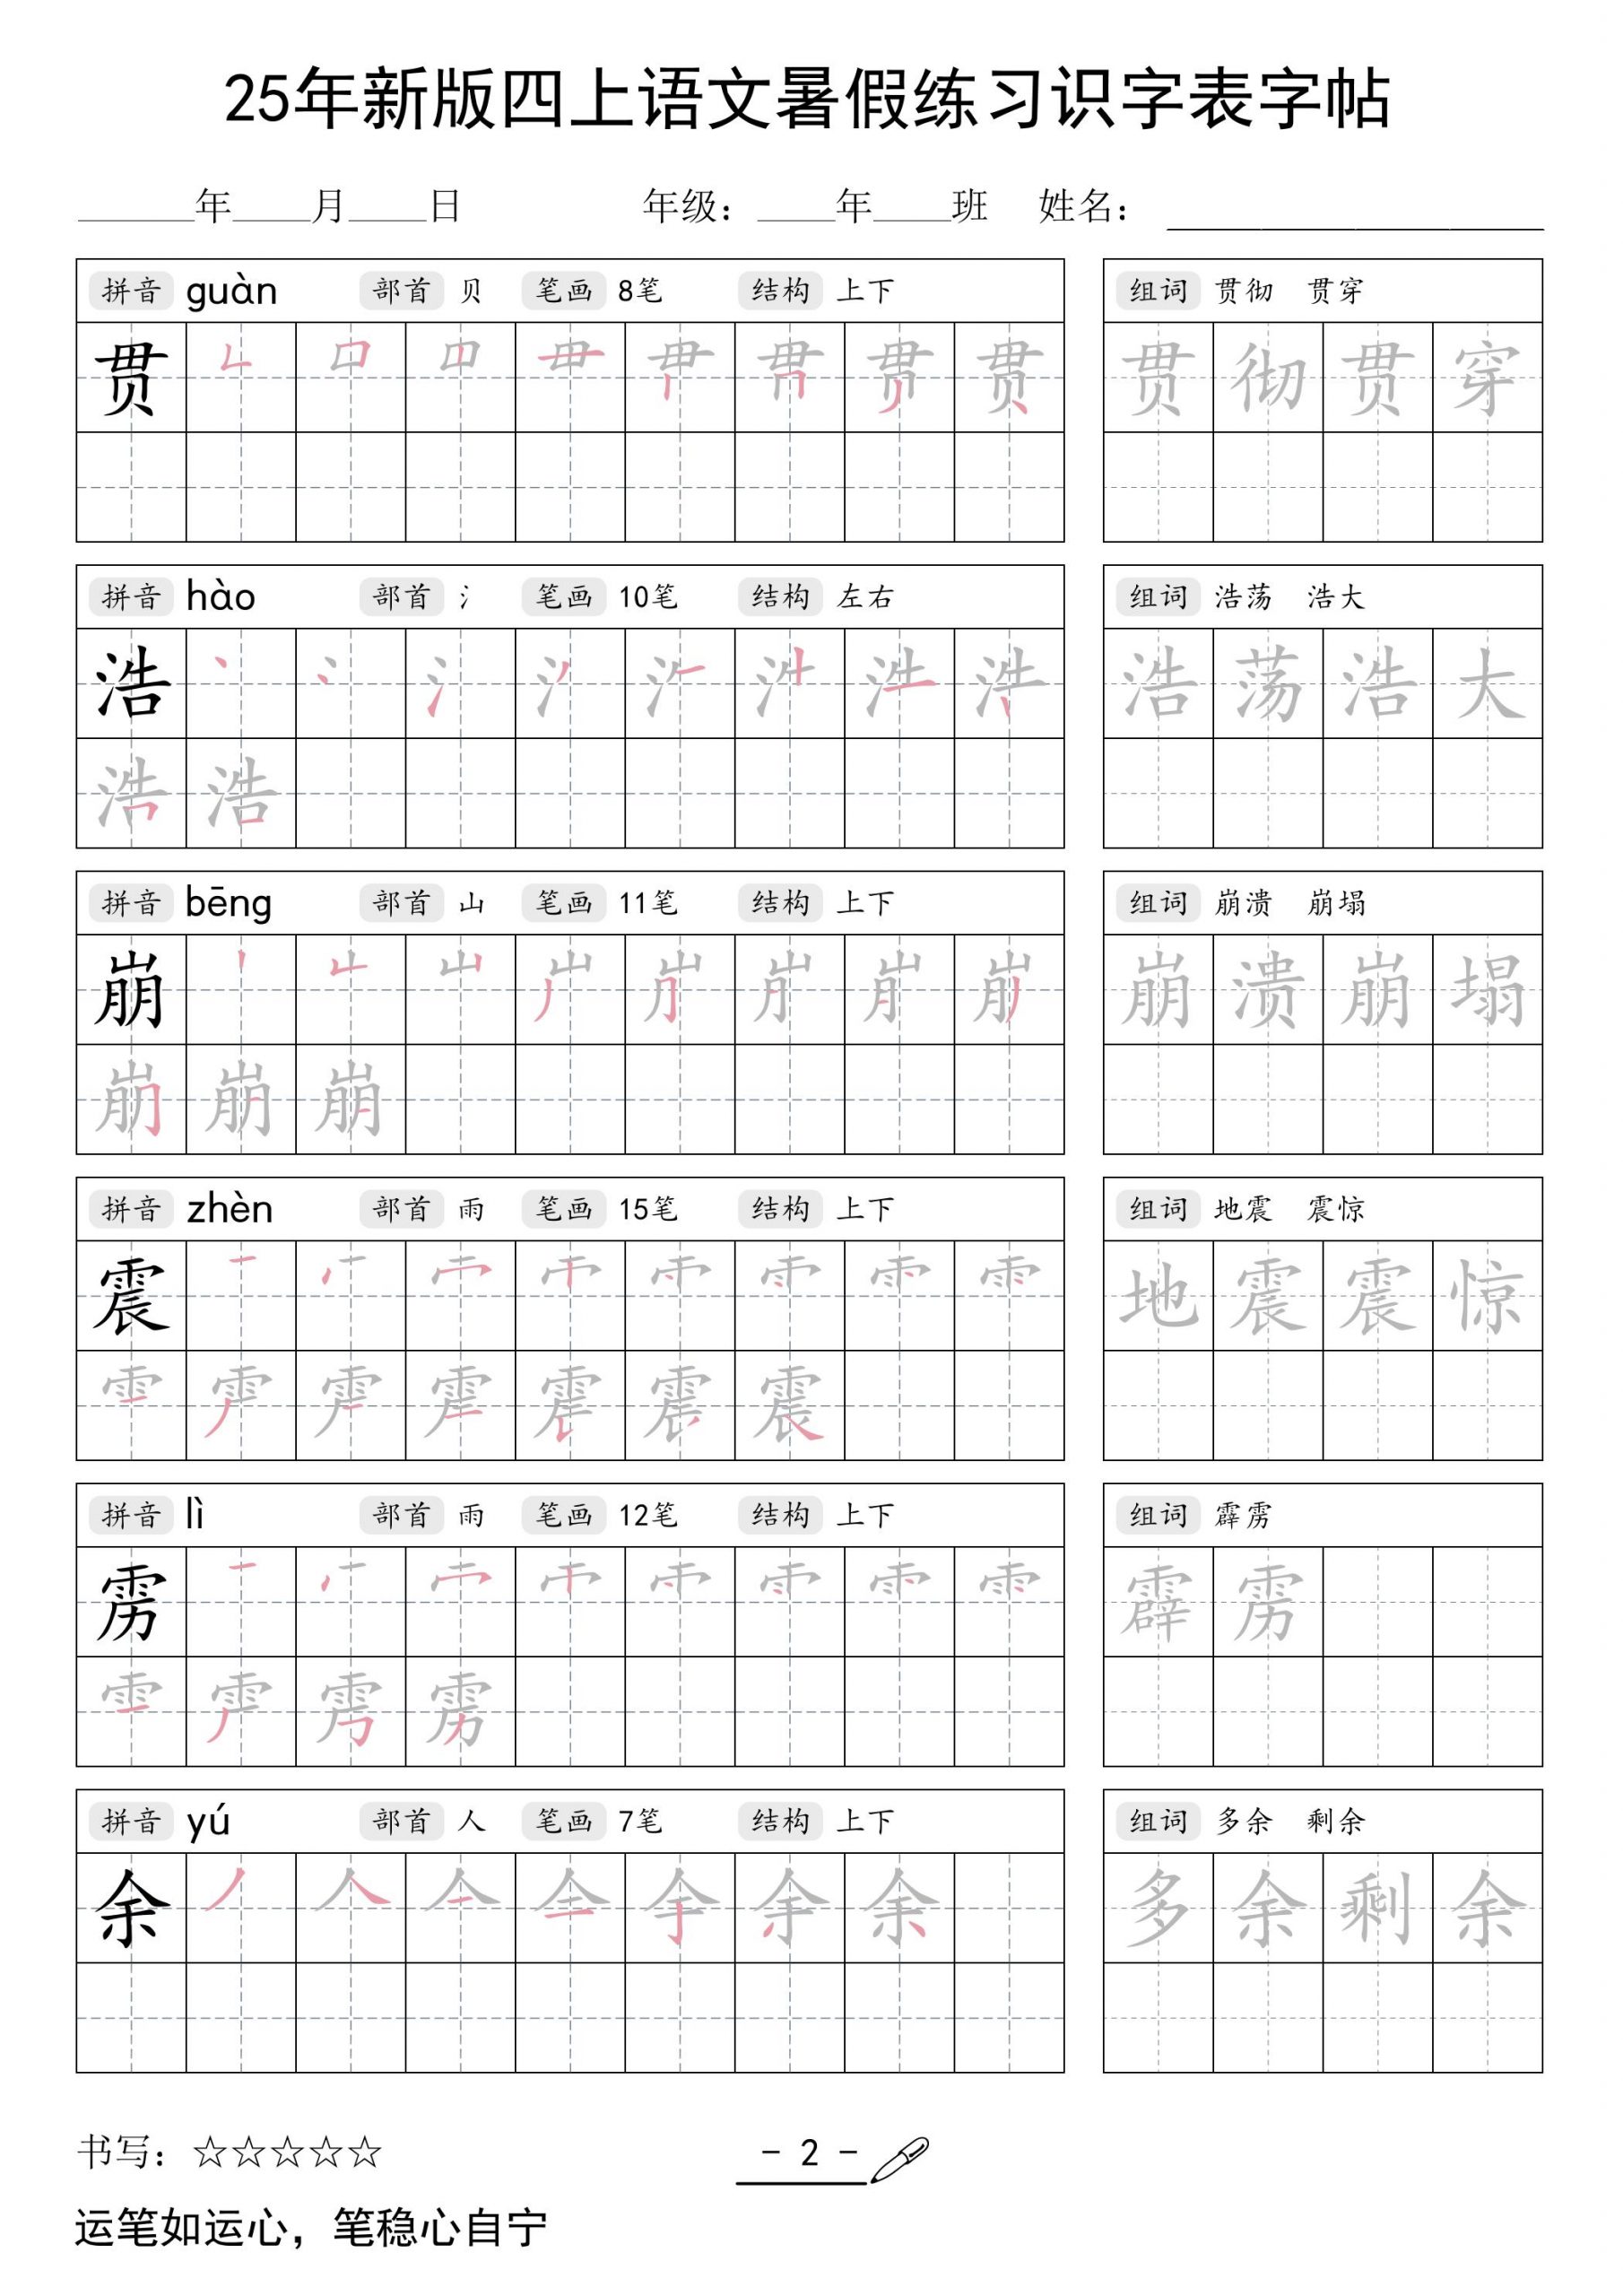 25年新版四上语文暑假练习识字表字帖
______年____月____日 年级：____年____班 姓名：____________
拼音 guàn 部首 贝 笔画 8笔 结构 上下
贯
组词 贯彻 贯穿
贯彻贯穿
拼音 hào 部首 氵 笔画 10笔 结构 左右
浩
浩 浩
组词 浩荡 浩大
浩荡浩大
拼音 bēng 部首 山 笔画 11笔 结构 上下
崩
崩 崩 崩
组词 崩溃 崩塌
崩溃崩塌
拼音 zhèn 部首 雨 笔画 15笔 结构 上下
震
震
组词 地震 震惊
地震震惊
拼音 lì 部首 雨 笔画 12笔 结构 上下
雳
雳
组词 霹雳
霹雳
拼音 yú 部首 人 笔画 7笔 结构 上下
余 余
组词 多余 剩余
多余剩余
书写：☆☆☆☆☆
- 2 -
运笔如运心，笔稳心自宁